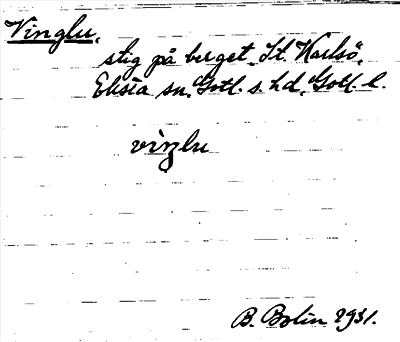 Vinglu,
stig på berget, St. Karlsö,
Eksta sn, Gotl. s. hd, Gotl. l.
viŋlu
B. Bolin 1931.